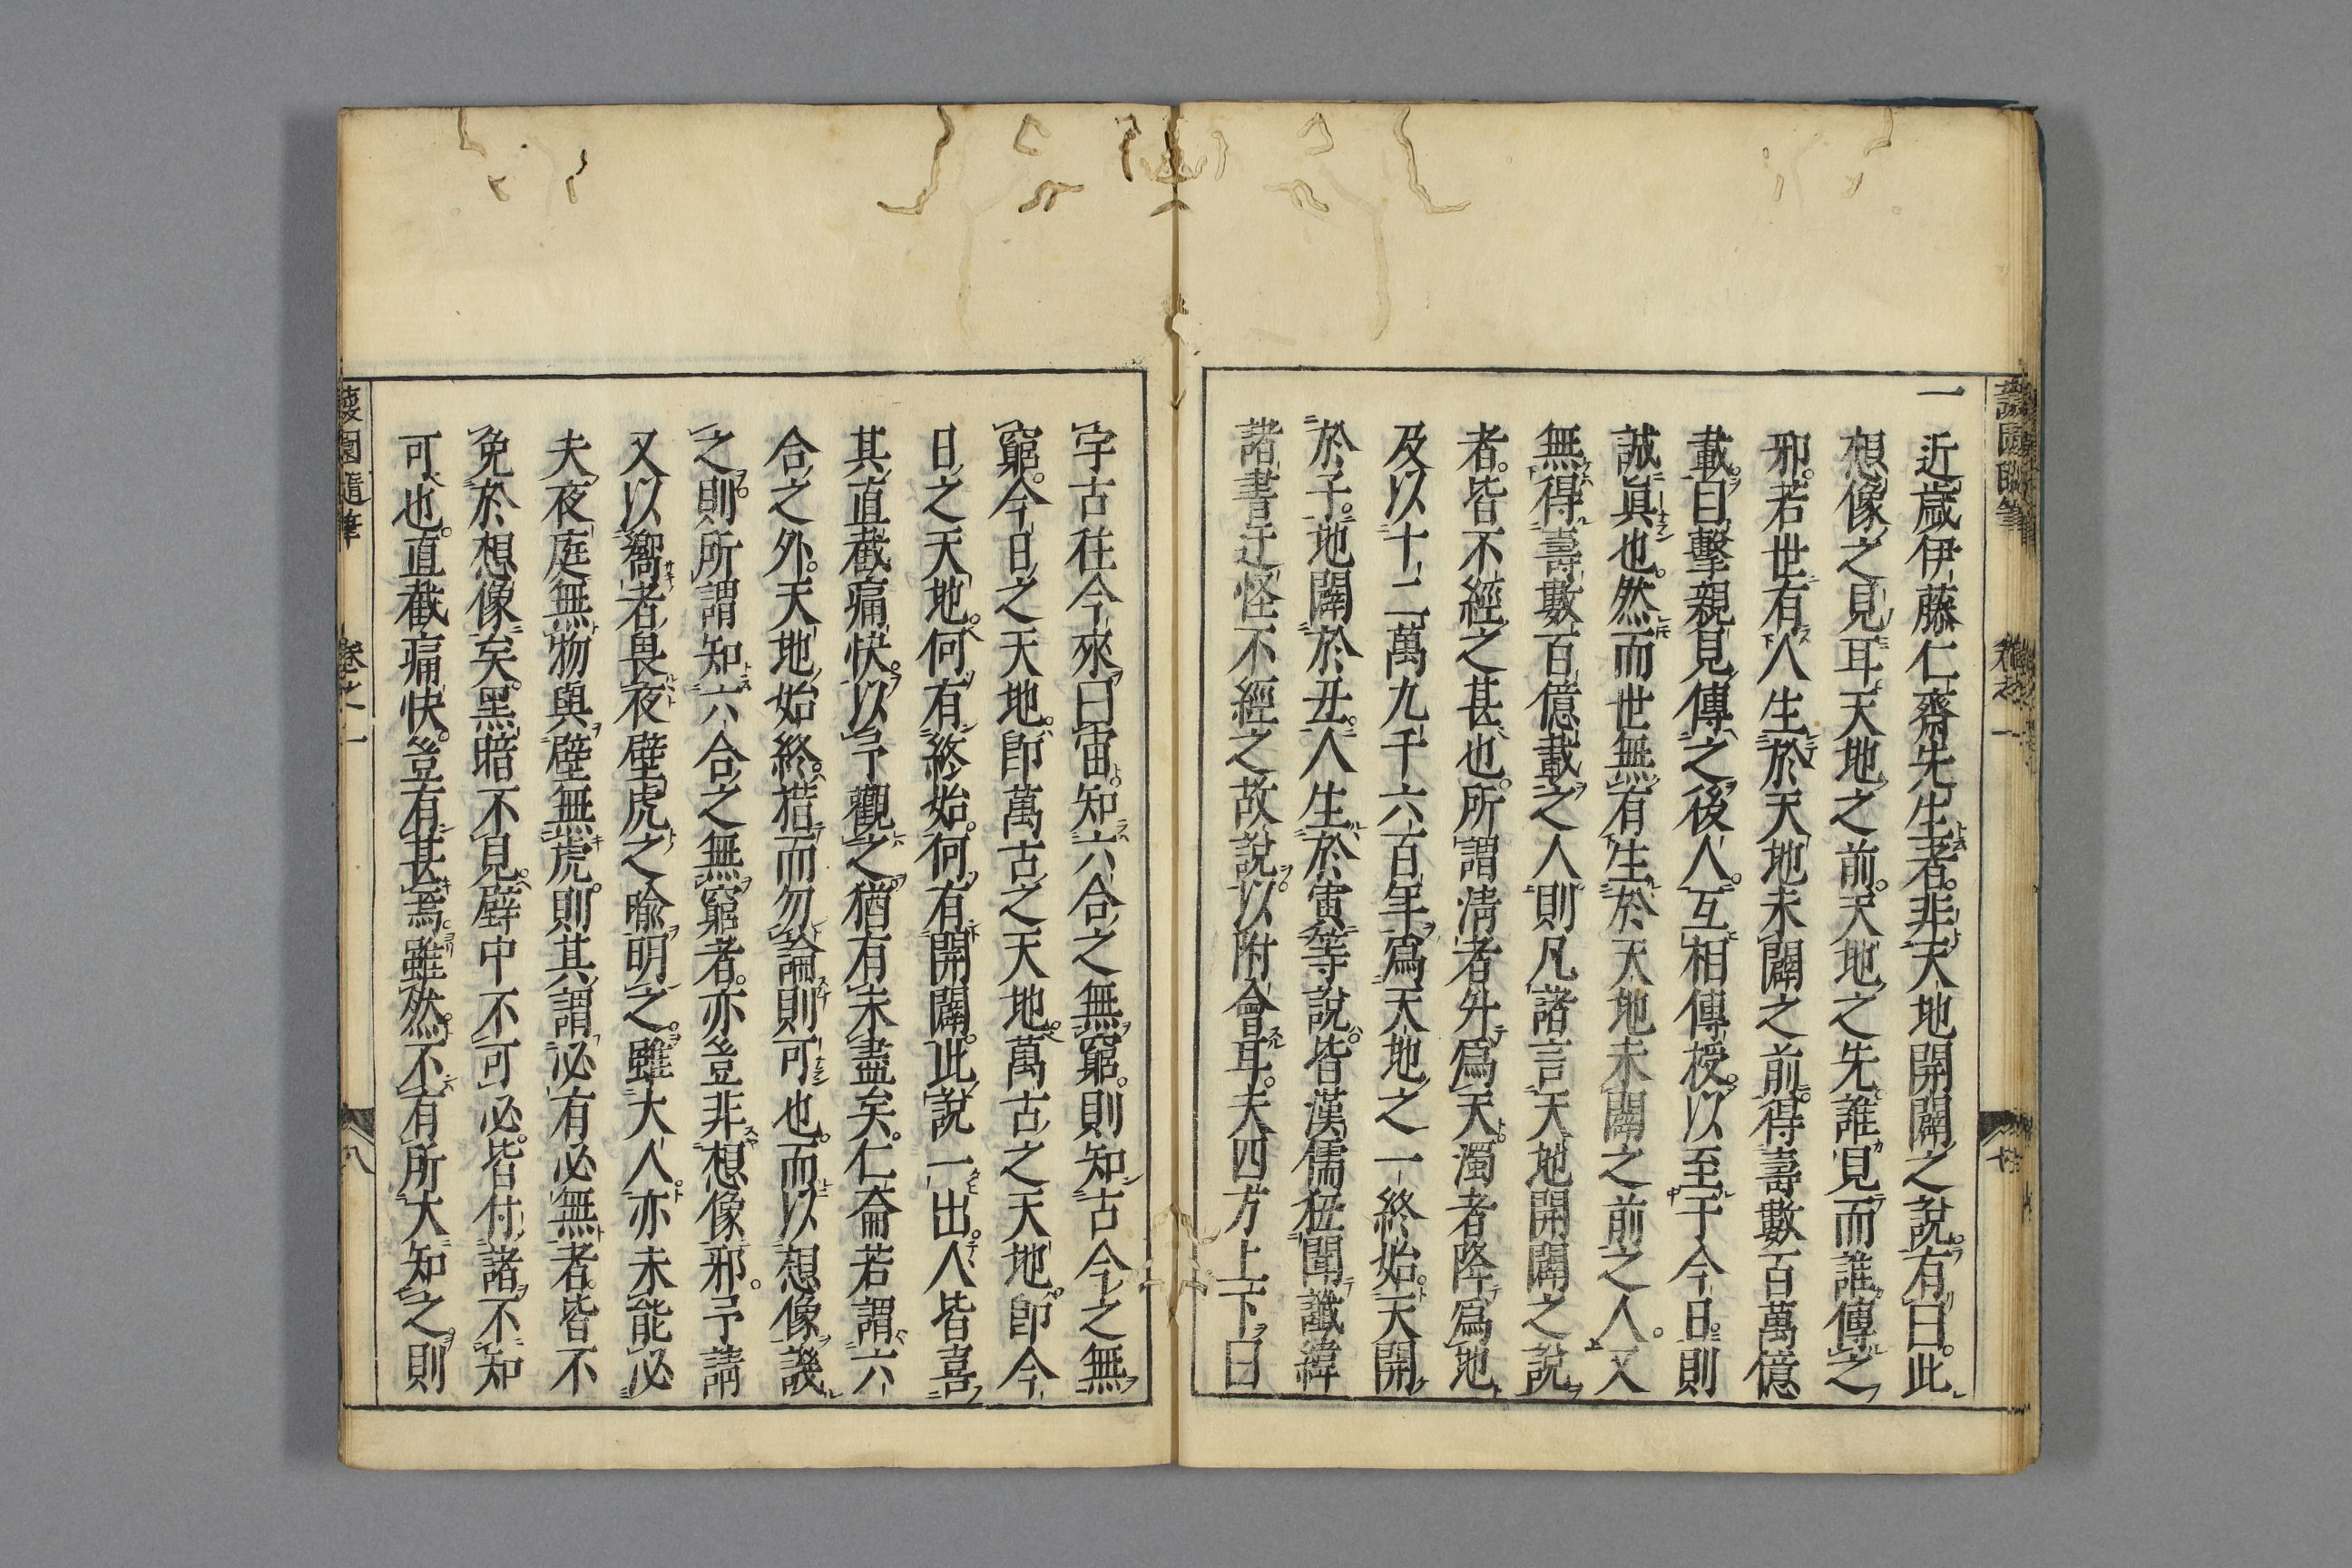 一近歲伊藤仁齋先生者。非天地開闢之說。有曰。此
想像之見耳。天地之前。天地之先。誰見而誰傳之
邪。若世有人生於天地未闢之前。得壽數百萬億
載。目擊親見。傳之後人。互相傳授。以至于今日。則
誠眞也。然而世無有生於天地未闢之前之人。又
無得壽數百億載之人。則凡諸言天地開闢之說
者。皆不經之甚也。所謂淸者升爲天。濁者降爲地
及以十二萬九千六百年。爲天地之一終始。天開
於子。地闢於丑。人生於寅等說。皆漢儒狃聞讖緯
諸書迂怪不經之故說。以附會耳。夫四方上下曰
宇古往今來曰宙。知六合之無窮。則知古今之無
窮。今日之天地。卽萬古之天地。萬古之天地。卽今
日之天地。何有終始。何有開闢。此說一出。人皆喜
其直截痛快。以予觀之。猶有未盡矣。仁齋若謂六
合之外。天地始終。措而勿論則可也。而以想像譏
之。則所謂知六合之無窮者。亦豈非想像邪。予請
又以嚮者畏夜壁虎之喩明之。雖大人亦未能必
夫夜庭無物與壁無虎。則其謂必有必無者。皆不
免於想像矣。黑暗不見。壁中不可必。皆付諸不知
可也。直截痛快。豈有甚焉。雖然。不有所大知之。則
蘐園隨筆 卷之一 八